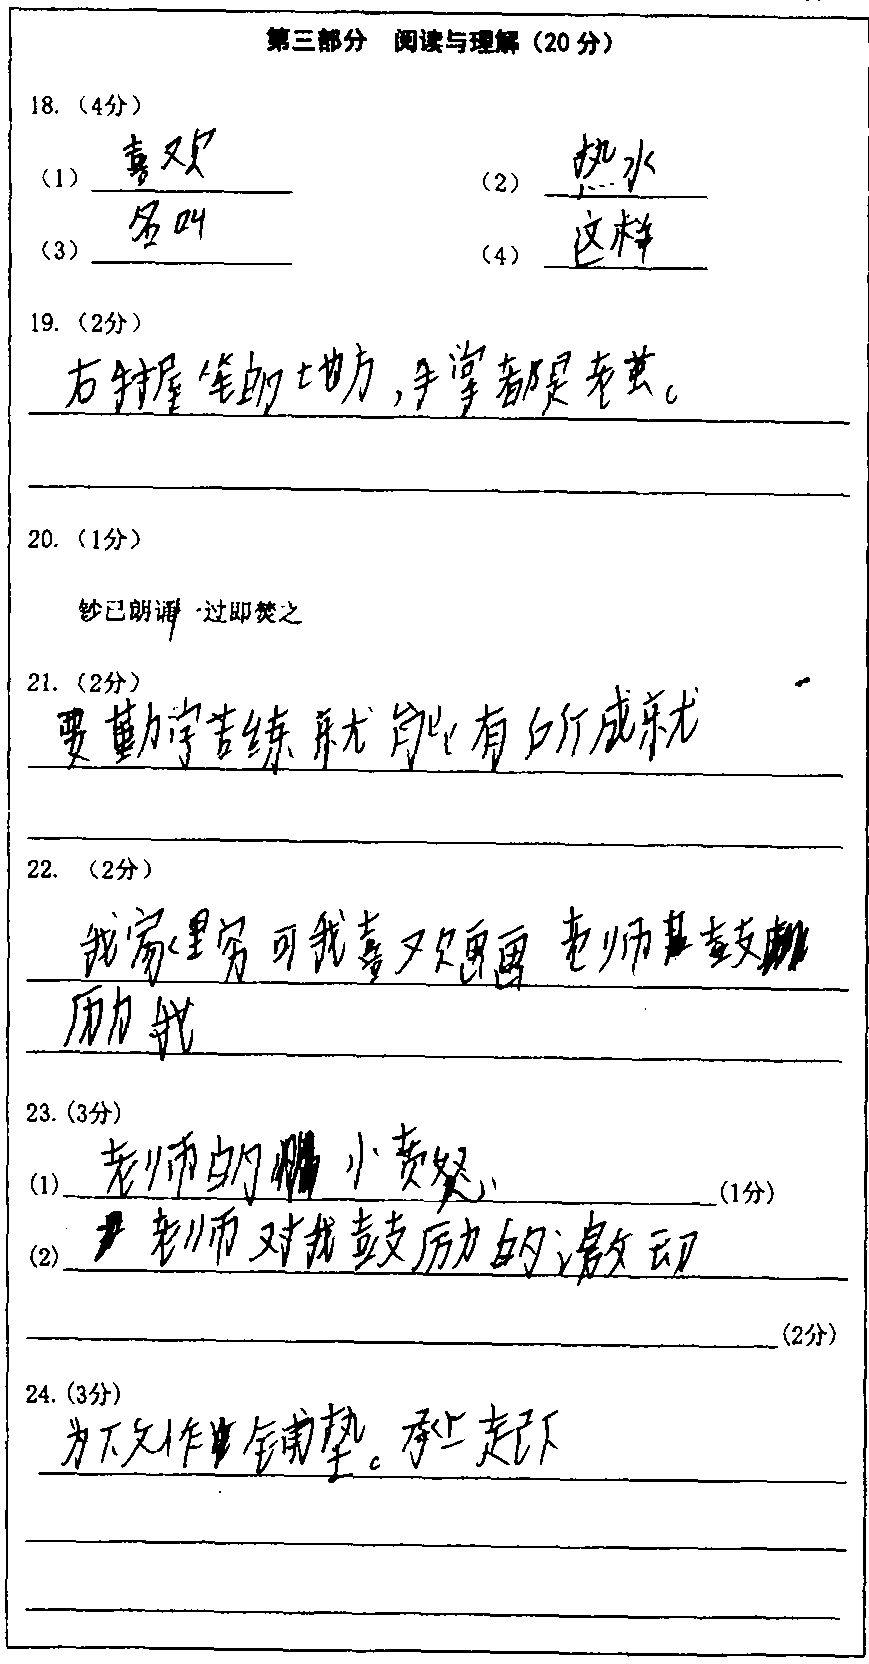 第三部分 阅读与理解（20分）
18.（4分）
（1）喜欢 （2）热水
（3）名叫 （4）这样
19.（2分）
右手握笔的地方，手掌都是老茧。
20.（1分）
钞已朗诵一过即焚之
21.（2分）
要勤学苦练就能有所成就
22. （2分）
我家里穷可我喜欢画画 老师其鼓
励我
23.(3分)
(1) 老师的 小愤怒 (1分)
(2) 老师对我鼓励的激动
(2分)
24.(3分)
为下文作铺垫。承上起下